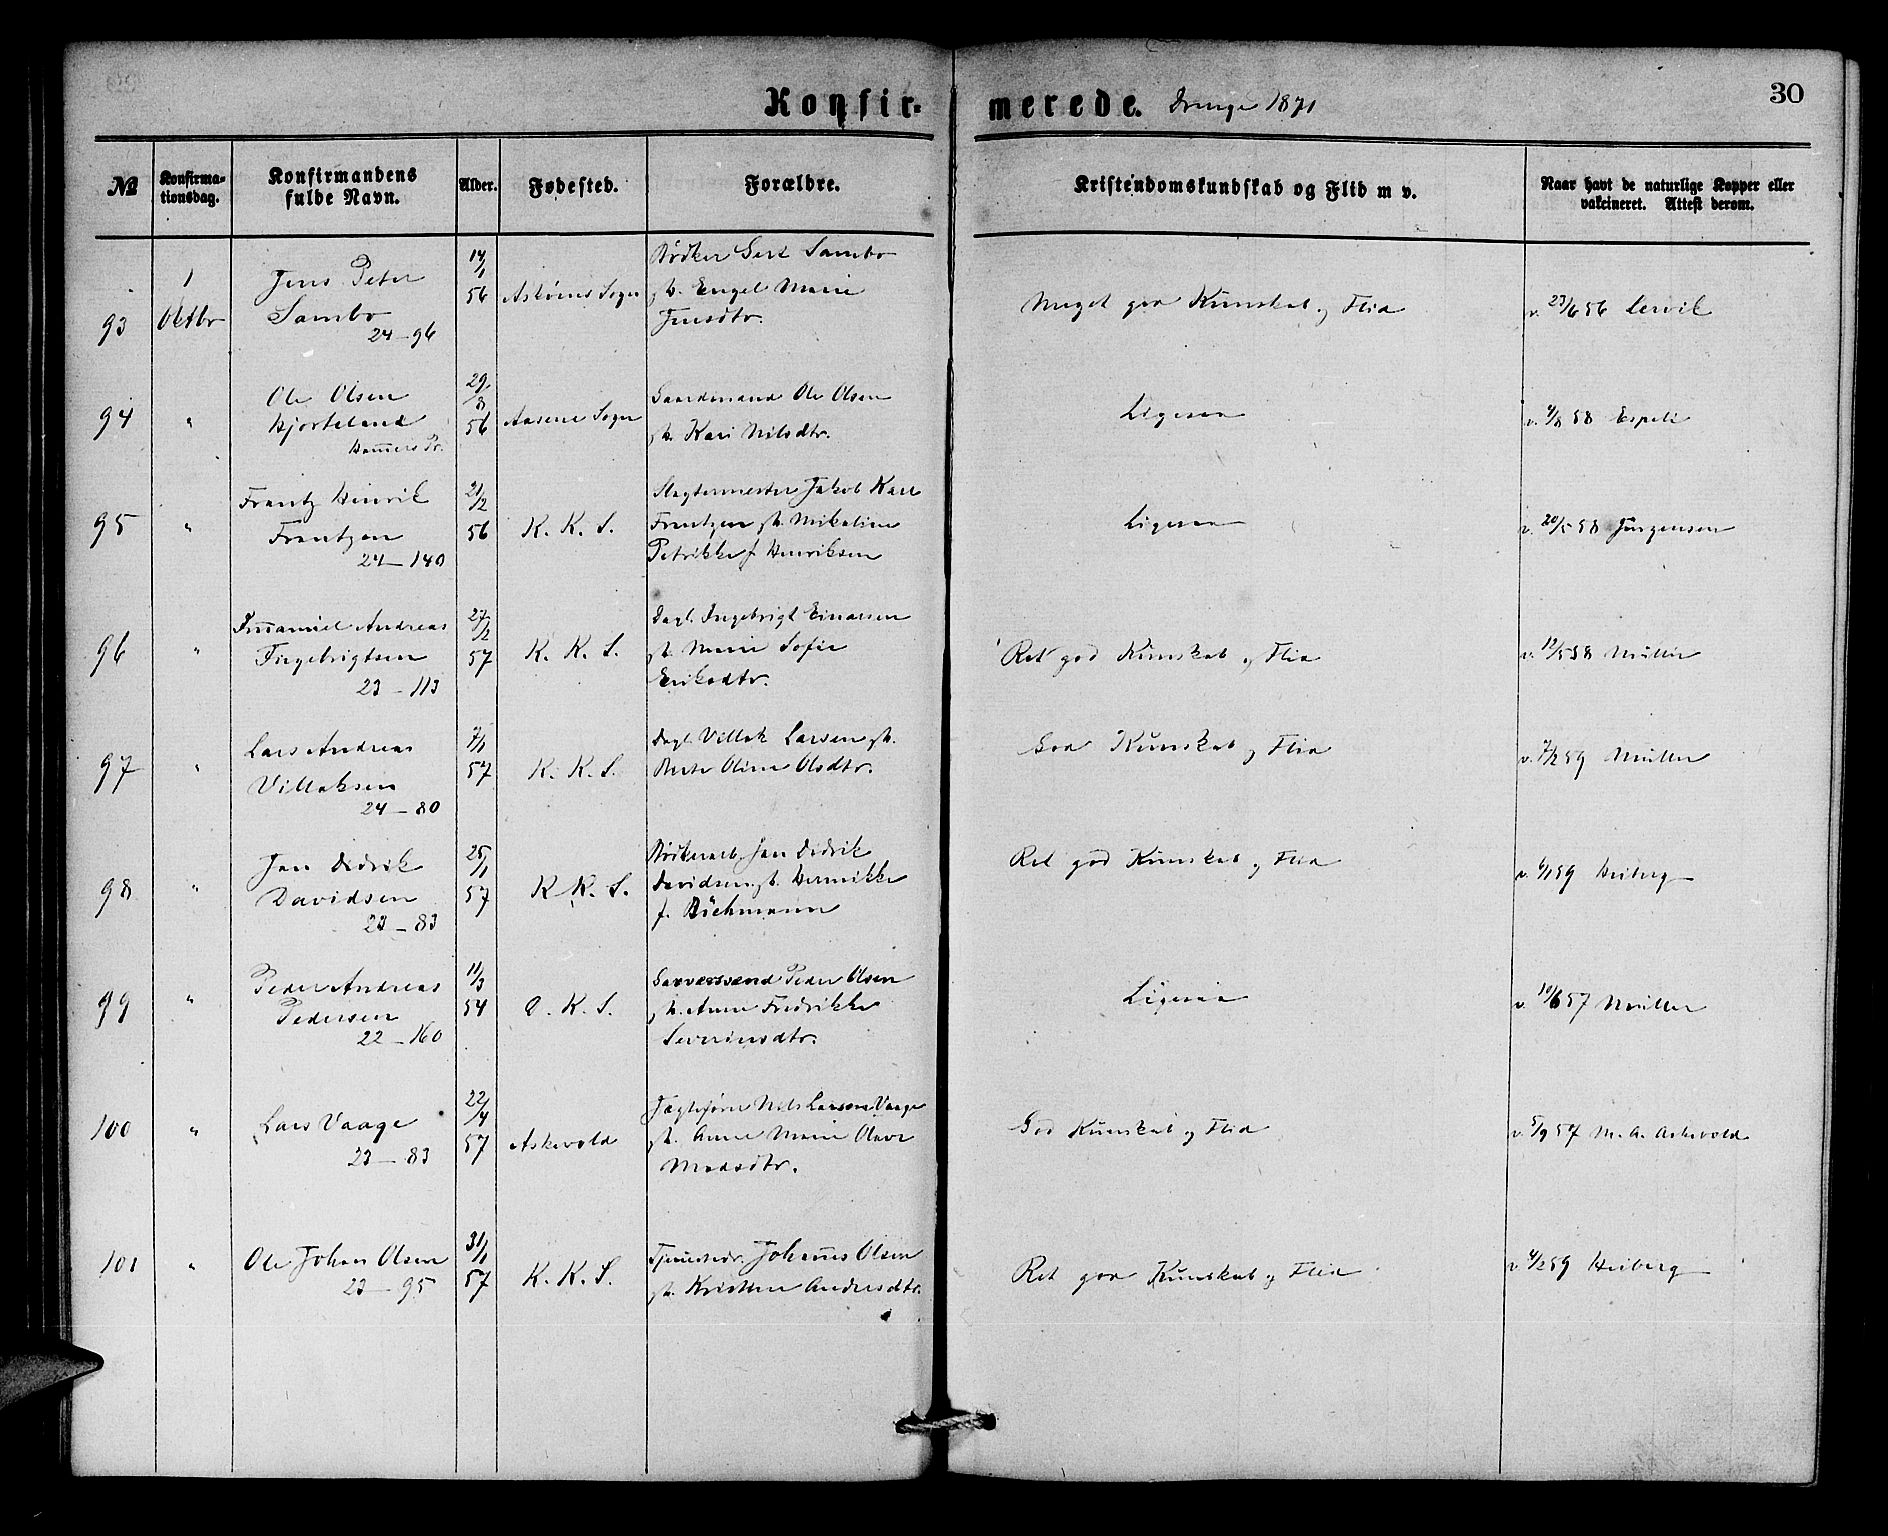 Konfirmerede. Drenge 1871
30
No
Konfirmationsdag.
Konfirmandens fulde Navn.
Alder.
Fødested.
Forældre.
Kristendomskundskab og Flid m v.
Naar havt de naturlige Kopper eller vakcineret. Attest derom.
93
1 Oktbr
Jens Peter
Sambo
24-96
14/1
56
Askøens Sogn
Bødker Gert Sambo
h. Engel Marie
Jensdtr.
Meget god Kunskab og Flid
v. 23/6 56 Lervik
94
"
Ole Olsen
Hjorteland
Hammers Pr.
29/8
56
Aasene Sogn
Gaardmand Ole Olsen
h. Kari Nilsdtr.
Ligesaa
v. 4/8 58 Espeli
95
"
Frantz Henrik
Frantzen
24-140
21/2
56
K. K. S.
Slagtermester Jakob Karl
Frantzen h. Mikaline
Petrikke f. Henriksen
Ligesaa
v. 20/5 58 Jürgensen
96
"
Imanuel Andreas
Ingebrigtsen
23-113
27/2
57
K. K. S.
Dagl. Ingebrigt Einarsen
h. Marie Sofie
Eriksdtr.
Ret god Kunskab og Flid
v. 12/5 58 Müller
97
"
Lars Andreas
Villaksen
24-80
7/1
57
K. K. S.
Dagl. Villak Larsen h.
Berte Oline Olsdtr.
God Kunskab og Flid
v. 7/2 59 Müller
98
"
Jan Didrik
Davidsen
23-83
25/1
57
K. K. S.
Bødkerarb. Jan Didrik
Davidsen h. Henrikke
f. Büchmann
Ret god Kunskab og Flid
v. 6/1 59 Heiberg
99
"
Peder Andreas
Pedersen
22-160
11/3
54
D. K. S.
Garversvend Peder Olsen
h. Anne Fredrikke
Severinsdtr.
Ligesaa
v. 10/6 57 Müller
100
"
Lars Vaage
23-83
22/4
57
Askevold
Jægtefører Nils Larsen Vaage
h. Anne Marie Olave
Madsdtr.
God Kunskab og Flid
v. 5/9 57 M. A. Askevold
101
"
Ole Johan Olsen
23-95
31/1
57
K. K. S.
Tjenestedr. Johannes Olsen
h. Kristine Andersdtr.
Ret god Kunskab og Flid
v. 4/2 59 Heiberg